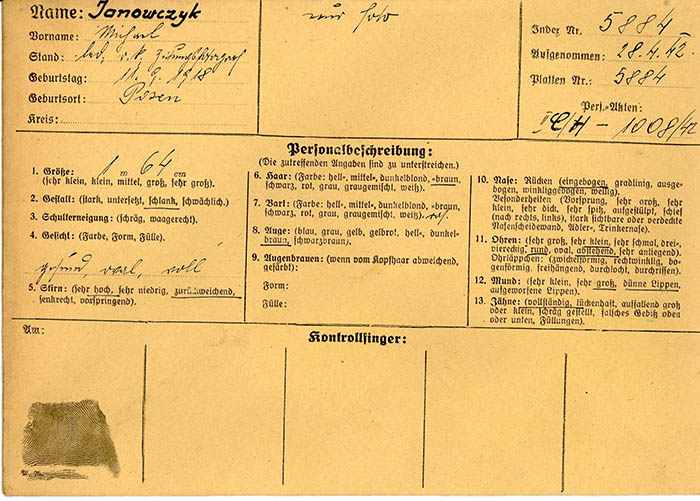 Name: Janowczyk
Vorname: Michael
Stand: led,
Geburtstag: 11. 9. 1918
Geburtsort: Posen
Kreis:
nur Foto
Index Nr. 5884
Aufgenommen: 28.4.42.
Platten Nr.: 5884
Pers.-Akten:
1008/42
Personalbeschreibung:
(Die zutreffenden Angaben sind zu unterstreichen.)
1. Größe: 1 m 64 cm
(sehr klein, klein, mittel, groß, sehr groß).
2. Gestalt: (stark, untersetzt, schlank, schwächlich.)
3. Schulterneigung: (schräg, waagerecht).
4. Gesicht: (Farbe, Form, Fülle).
gesund, oval, voll
5. Stirn: (sehr hoch, sehr niedrig, zurückweichend,
senkrecht, vorspringend).
6. Haar: (Farbe: hell-, mittel-, dunkelblond, -braun,
schwarz, rot, grau, graugemischt, weiß).
7. Bart: (Farbe: hell-, mittel-, dunkelblond, -braun,
schwarz, rot, grau, graugemischt, weiß).
8. Auge: (blau, grau, gelb, gelbrot, hell-, dunkel-
braun, schwarzbraun).
9. Augenbrauen: (wenn vom Kopfhaar abweichend,
gefärbt):
Form:
Fülle:
10. Nase: Rücken (eingebogen, gradlinig, ausge-
bogen, winkliggebogen, wellig).
Besonderheiten (Vorsprung, sehr groß, sehr
klein, sehr dick, sehr spitz, aufgestülpt, schief
(nach rechts, links), stark sichtbare oder verdeckte
Nasenscheidewand, Adler-, Trinkernase).
11. Ohren: (sehr groß, sehr klein, sehr schmal, drei-,
viereckig, rund, oval, abstehend, sehr anliegend).
Ohrläppchen: (zwickelförmig, rechtwinklig, bo-
genförmig, freihängend, durchlocht, durchrissen).
12. Mund: (sehr klein, sehr groß, dünne Lippen,
aufgeworfene Lippen).
13. Zähne: (vollständig, lückenhaft, auffallend groß
oder klein, schräg gestellt, falsches Gebiß oben
oder unten, Füllungen).
Am:
Kontrollfinger: